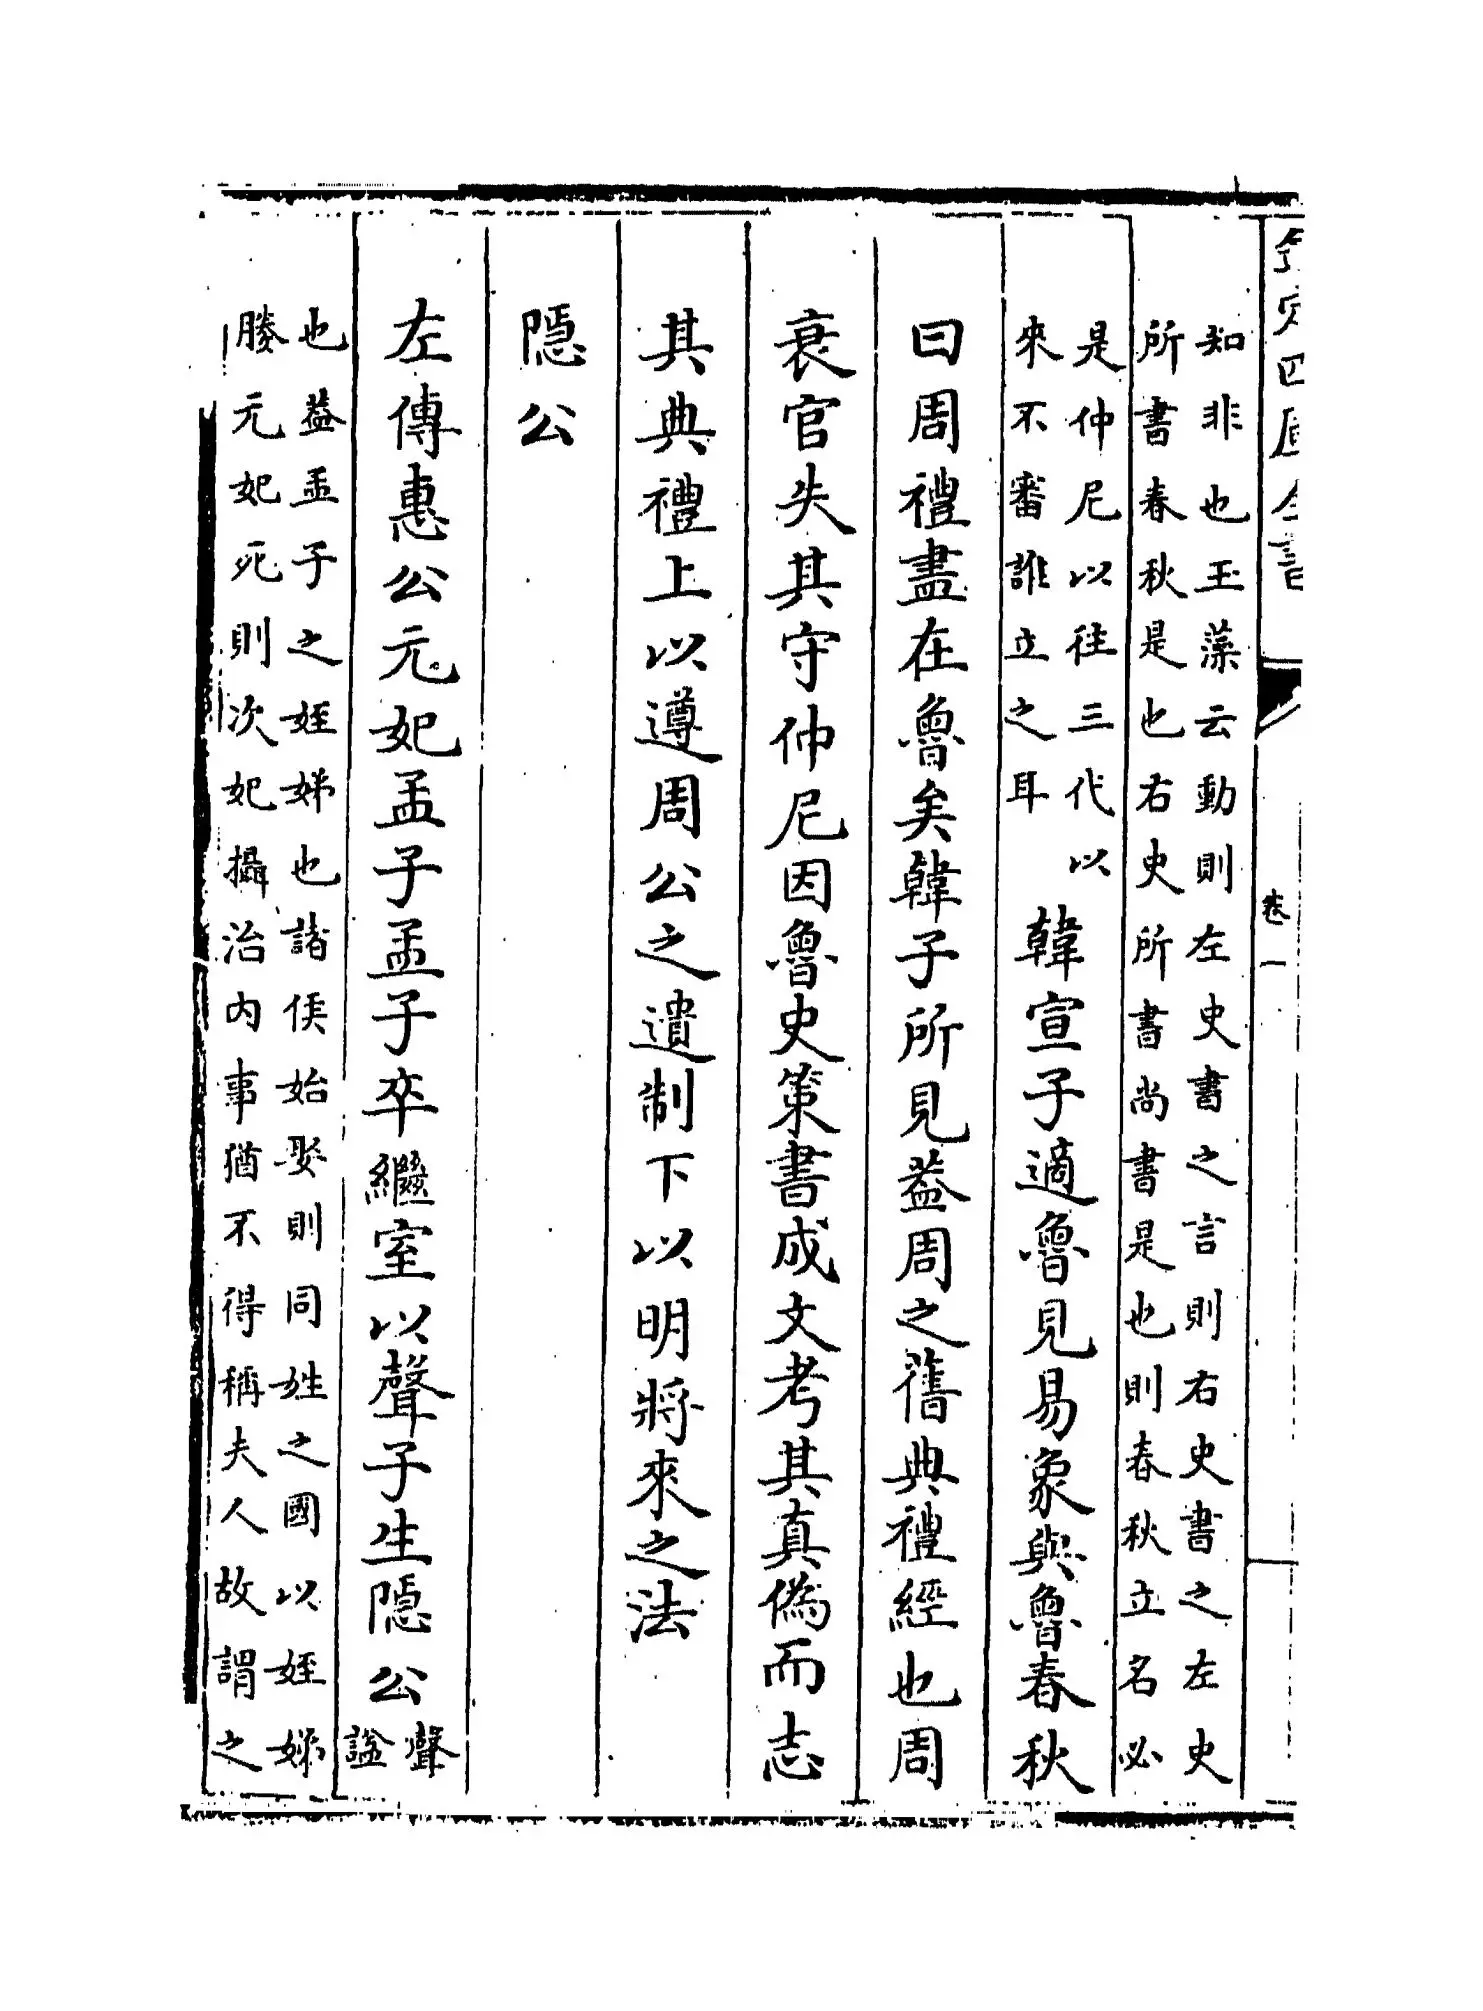 欽定四庫全書
卷一
知非也玉藻云動則左史書之言則右史書之左史
所書春秋是也右史所書尚書是也則春秋立名必
是仲尼以往三代以
來不審誰立之耳
韓宣子適魯見易象與魯春秋
曰周禮盡在魯矣韓子所見葢周之舊典禮經也周
衰官失其守仲尼因魯史策書成文考其真偽而志
其典禮上以遵周公之遺制下以明將來之法
隠公
左傳惠公元妃孟子孟子卒繼室以聲子生隠公
聲
諡
也葢孟子之姪娣也諸侯始娶則同姓之國以姪娣
媵元妃死則次妃攝治內事猶不得稱夫人故謂之